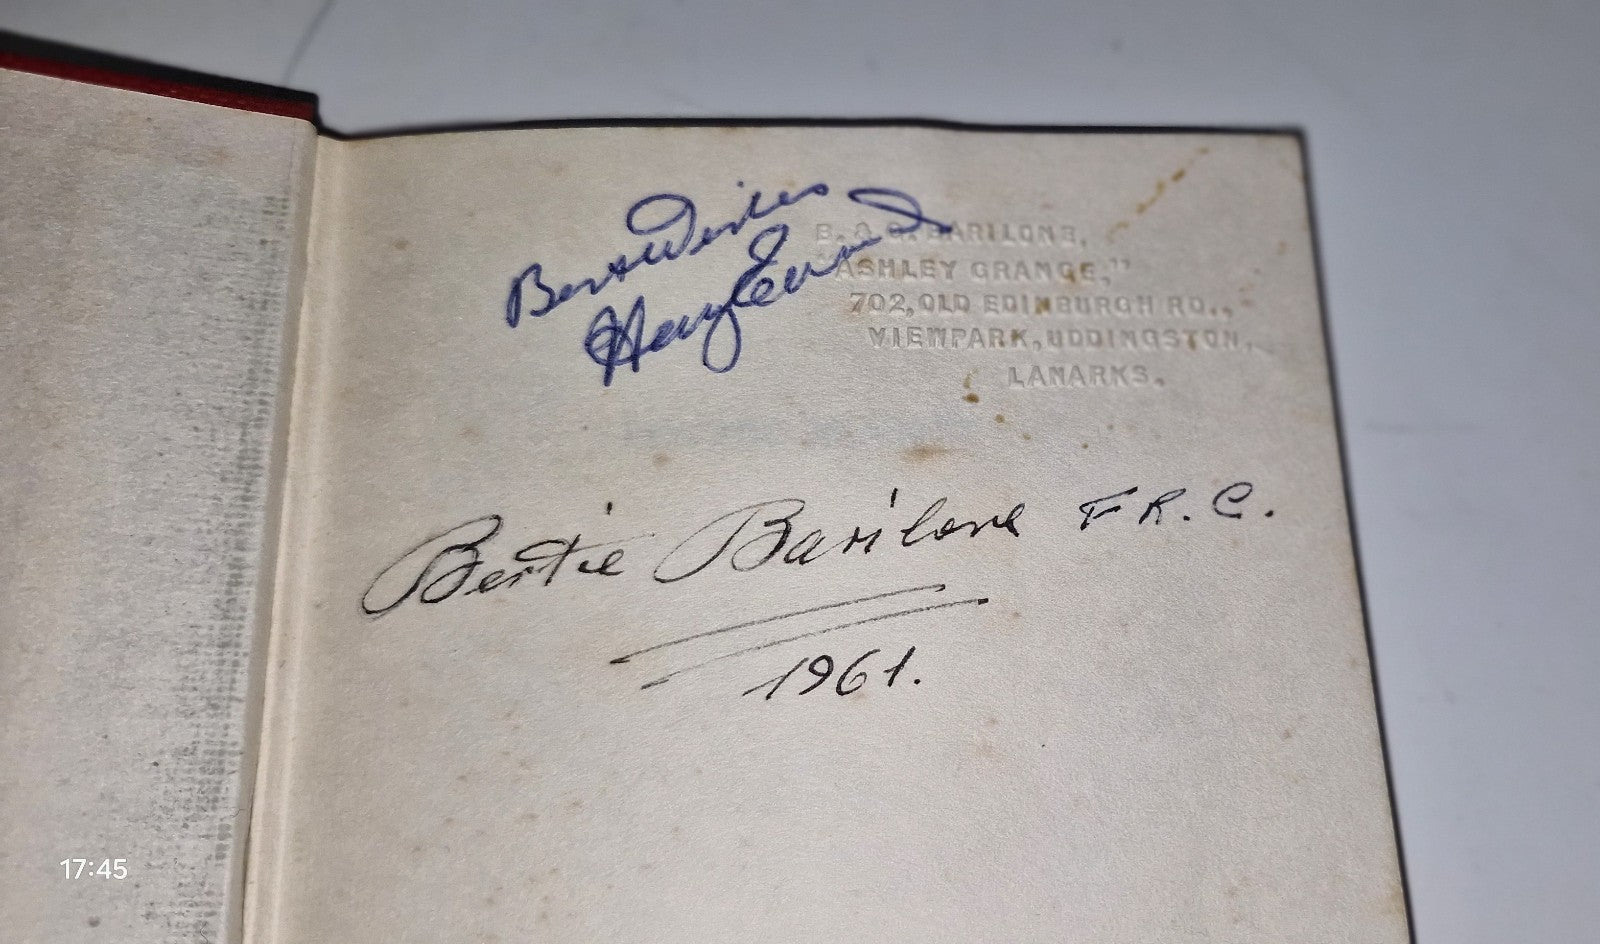 Best Wishes
Harry Evans
B. & G. BARILONE,
"ASHLEY GRANGE,"
702, OLD EDINBURGH RD.,
VIEWPARK, UDDINGSTON,
LANARKS.
Bertie Barilone F R. C.
1961.
17:45